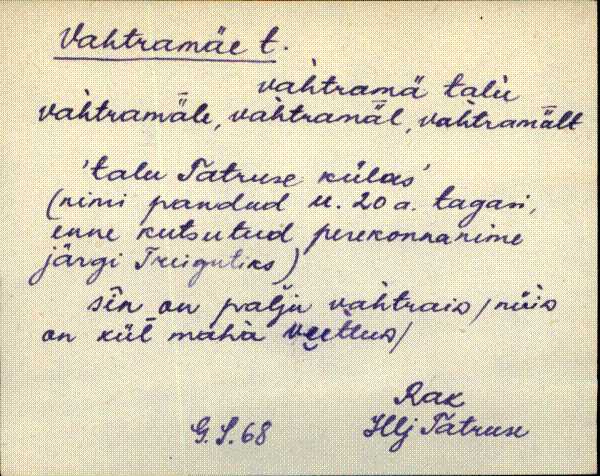 Vahtramäe t.
vàhtramä talù
vàhtramǟle, vàhtramǟl, vàhtramǟlt
'talu Tatruse külas'
(nimi pandud u. 20 a. tagasi,
enne kutsutud perekonnanime
järgi Treigutiks)
sīn on palju vahtrais / nüis
on kül mahà vẹttus /
Rak
G.S.68 Hlj Tatruse